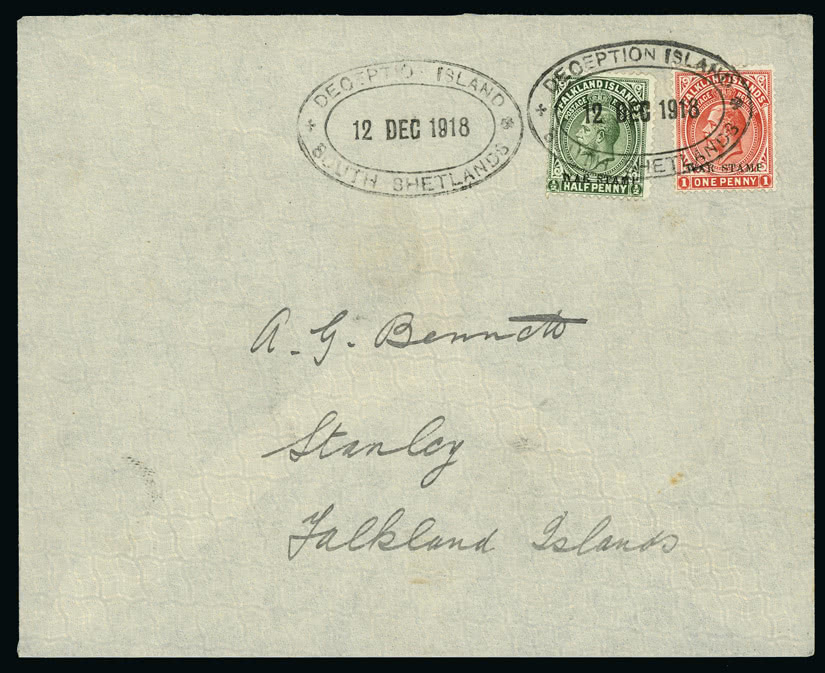 DECEPTION ISLAND
12 DEC 1918
SOUTH SHETLANDS
DECEPTION ISLAND
12 DEC 1918
SHETLANDS
FALKLAND ISLANDS
POSTAGE
WAR STAMP
½ HALF PENNY ½
FALKLAND ISLANDS
POSTAGE
WAR STAMP
1 ONE PENNY 1
A. G. Bennett
Stanley
Falkland Islands